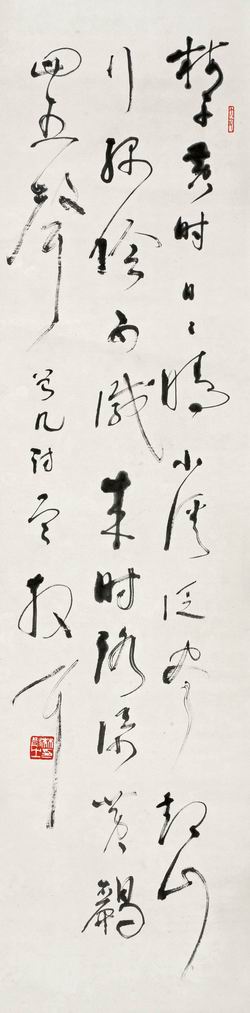 梅子黄时日日晴小溪泛尽却山
行绿阴不减来时路添黄鹂
四五聲 曾几诗 散耳